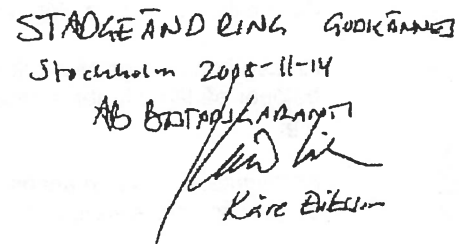 STADGEÄNDRING GODKÄNNES
Stockholm 2008-11-14
AB BOSTADSGARANTI
Kåre Eriksson